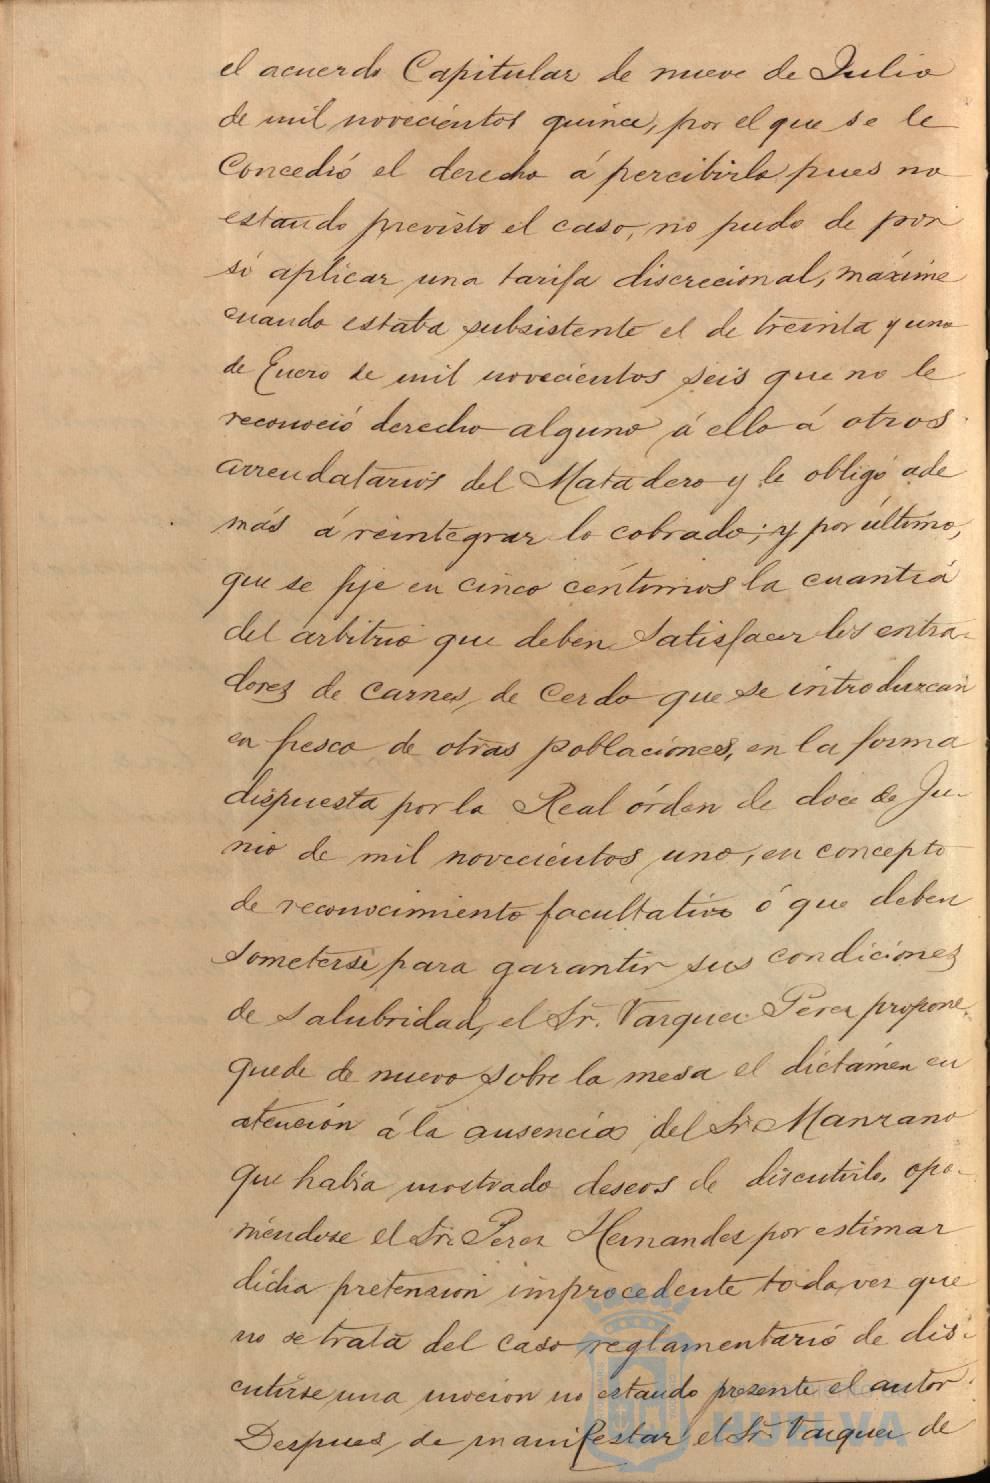 el acuerdo Capitular de nueve de Julio
de mil novecientos quince, por el que se le
Concedió el derecho á percibirlo pues no
estando previsto el caso, no pudo de por
si aplicar una tarifa discrecional, máxime
cuando estaba subsistente el de treinta y uno
de Enero de mil novecientos seis que no le
reconoció derecho alguno á ello á otros
arrendatarios del Matadero y le obligó ade
más á reintegrar lo cobrado; y por último,
que se fije en cinco céntimos la cuantía
del arbitrio que deben satisfacer los entra-
dores de carnes, de Cerdo que se introduzcan
en fresco de otras poblaciones, en la forma
dispuesta por la Real órden de doce de Ju-
nio de mil novecientos uno, en concepto
de reconocimiento facultativo ó que deben
someterse para garantir sus condiciones
de salubridad, el Sr. Vazquez Perez propone
quede de nuevo sobre la mesa el dictámen en
atención á la ausencia del Sr. Manzano
que habia mostrado deseos de discutirlo, opo-
niéndose el Sr. Perez Hernandez por estimar
dicha pretension improcedente toda vez que
no se trata del caso reglamentario de dis-
cutirse una mocion no estando presente el autor.
Despues de manifestar el Sr. Vazquez de
HUELVA